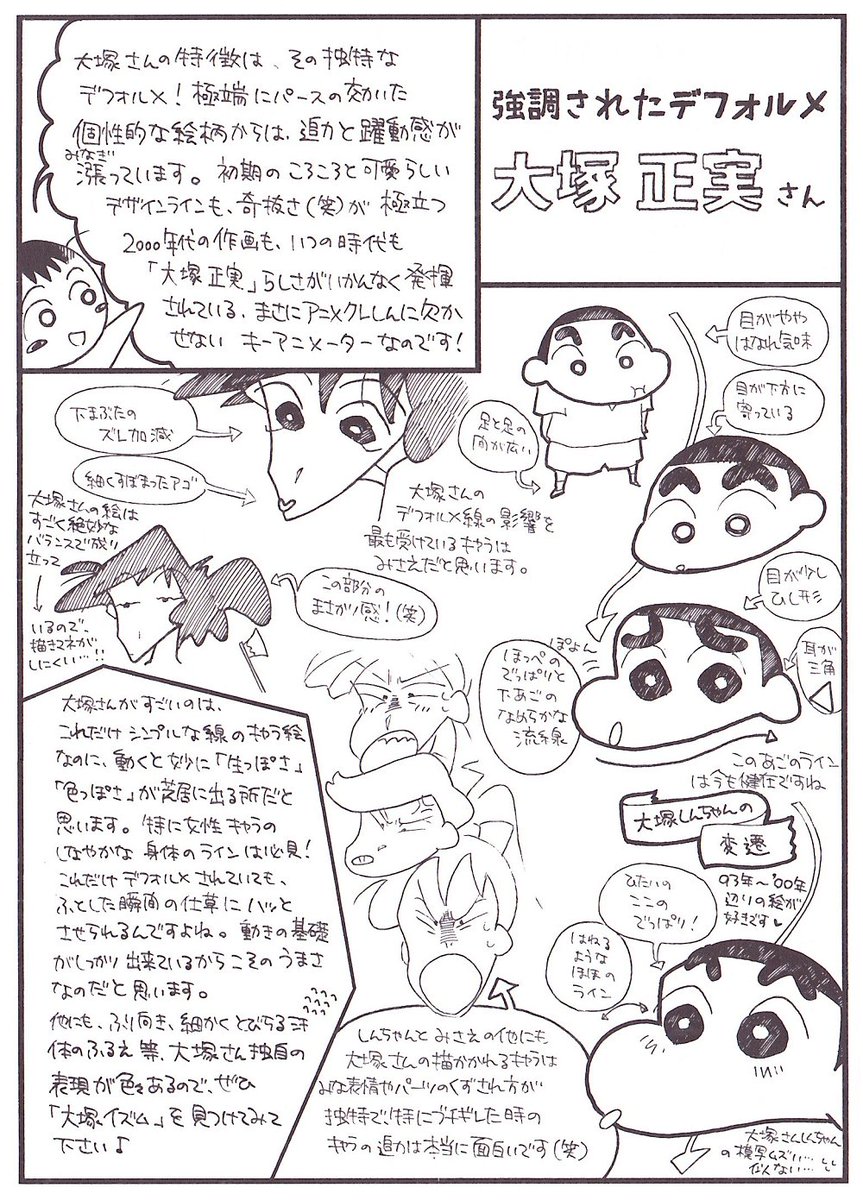 強調されたデフォルメ
大塚 正実 さん
大塚さんの特徴は、その独特な
デフォルメ！極端にパースの効いた
個性的な絵柄からは、迫力と躍動感が
みなぎ
漲っています。初期のころころと可愛らしい
デザインラインも、奇抜さ(笑)が極立つ
2000年代の作画も、いつの時代も
「大塚正実」らしさがいかんなく発揮
されている、まさにアニメクレしんに欠か
せない キーアニメーターなのです！
目がやや
はなれ気味
目が下方に
寄っている
足と足の
間が広い
下まぶたの
ズレ加減
細くすぼまったアゴ
大塚さんの
デフォルメ線の影響を
最も受けているキャラは
みさえだと思います。
大塚さんの絵は
すごく絶妙な
バランスで成り
立って
いるので、
描きマネが
しにくい…!!
この部分の
まさかり感！(笑)
目が少し
ひし形
耳が
三角
ぽよん
ほっぺの
でっぱりと
下あごの
なめらかな
流線
このあごのライン
は今も健在ですね
大塚しんちゃんの
変遷
93年～'00年
辺りの絵が
好きです♥
ひたいの
ここの
でっぱり！
はねる
ような
ほほの
ライン
大塚さんがすごいのは、
これだけシンプルな線のキャラ絵
なのに、動くと妙に「生っぽさ」
「色っぽさ」が芝居に出る所だと
思います。特に女性キャラの
しなやかな身体のラインは必見！
これだけデフォルメされていても、
ふとした瞬間の仕草にハッと
させられるんですよね。動きの基礎
がしっかり出来ているからこそのうまさ
なのだと思います。
他にも、ふり向き、細かくとびちる汗
体のふるえ等、大塚さん独自の
表現が色々あるので、ぜひ
「大塚イズム」を見つけてみて
下さい♪
しんちゃんとみさえの他にも
大塚さんの描かかれるキャラは
みな表情やパーツのくずされ方が
独特で、特にブチギレした時の
キャラの迫力は本当に面白いです(笑)
大塚さんしんちゃん
の模写ムズい…
似ない…